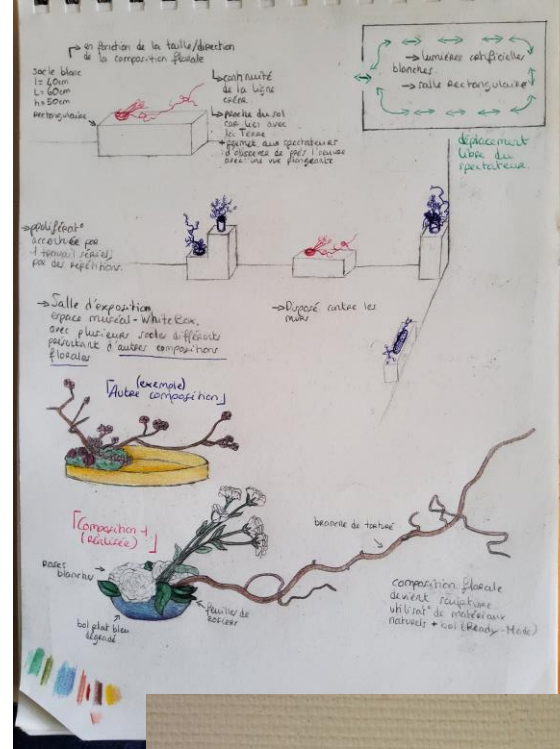 en fonction de la taille/direction
de la composition florale
socle blanc
l = 40cm
L = 60cm
h = 50cm
Rectangulaire
continuité
de la ligne
proche du sol
car lien avec
la Terre
+ permet aux spectateurs
d'observer de près l'oeuvre
avec une vue plongeante
→ lumières artificielles
blanches.
→ salle Rectangulaire
déplacement
libre du
spectateur.
→ proliférat°
accentuée par
1 travail sériel
par des répétitions.
→ Salle d'exposition
espace muséal - White Box.
avec plusieurs socles différents
présentant d'autres compositions
florales
→ Disposé contre les
murs
(exemple)
⌈Autre composition⌋
⌈Composition 1
(Réalisée)⌋
Roses
blanches
bol plat bleu
dégradé
feuilles de
rosiers
branche de torturé
composition florale
devient sculpture
utilisat° de matériaux
naturels + bol (Ready-Made)